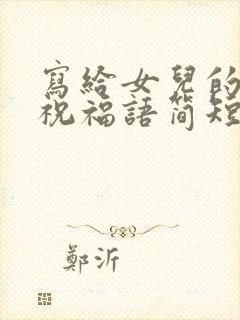 寫給女兒的
祝福語簡短
鄭沂